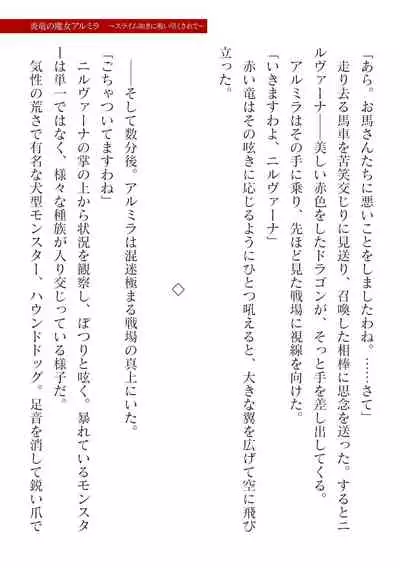 炎竜の魔女アルミラ　～スライム如きに吸い尽くされて～
「あら。お馬さんたちに悪いことをしましたわね。……さて」
走り去る馬車を苦笑交じりに見送り、召喚した相棒に思念を送った。するとニ
ルヴァーナ――美しい赤色をしたドラゴンが、そっと手を差し出してくる。
アルミラはその手に乗り、先ほど見た戦場に視線を向けた。
「いきますわよ、ニルヴァーナ」
赤い竜はその呟きに応じるようにひとつ吼えると、大きな翼を広げて空に飛び
立った。
◇
――そして数分後。アルミラは混迷極まる戦場の真上にいた。
「ごちゃついてますわね」
ニルヴァーナの掌の上から状況を観察し、ぽつりと呟く。暴れているモンスタ
ーは単一ではなく、様々な種族が入り交じっている様子だ。
気性の荒さで有名な犬型モンスター、ハウンドドッグ。足音を消して鋭い爪で